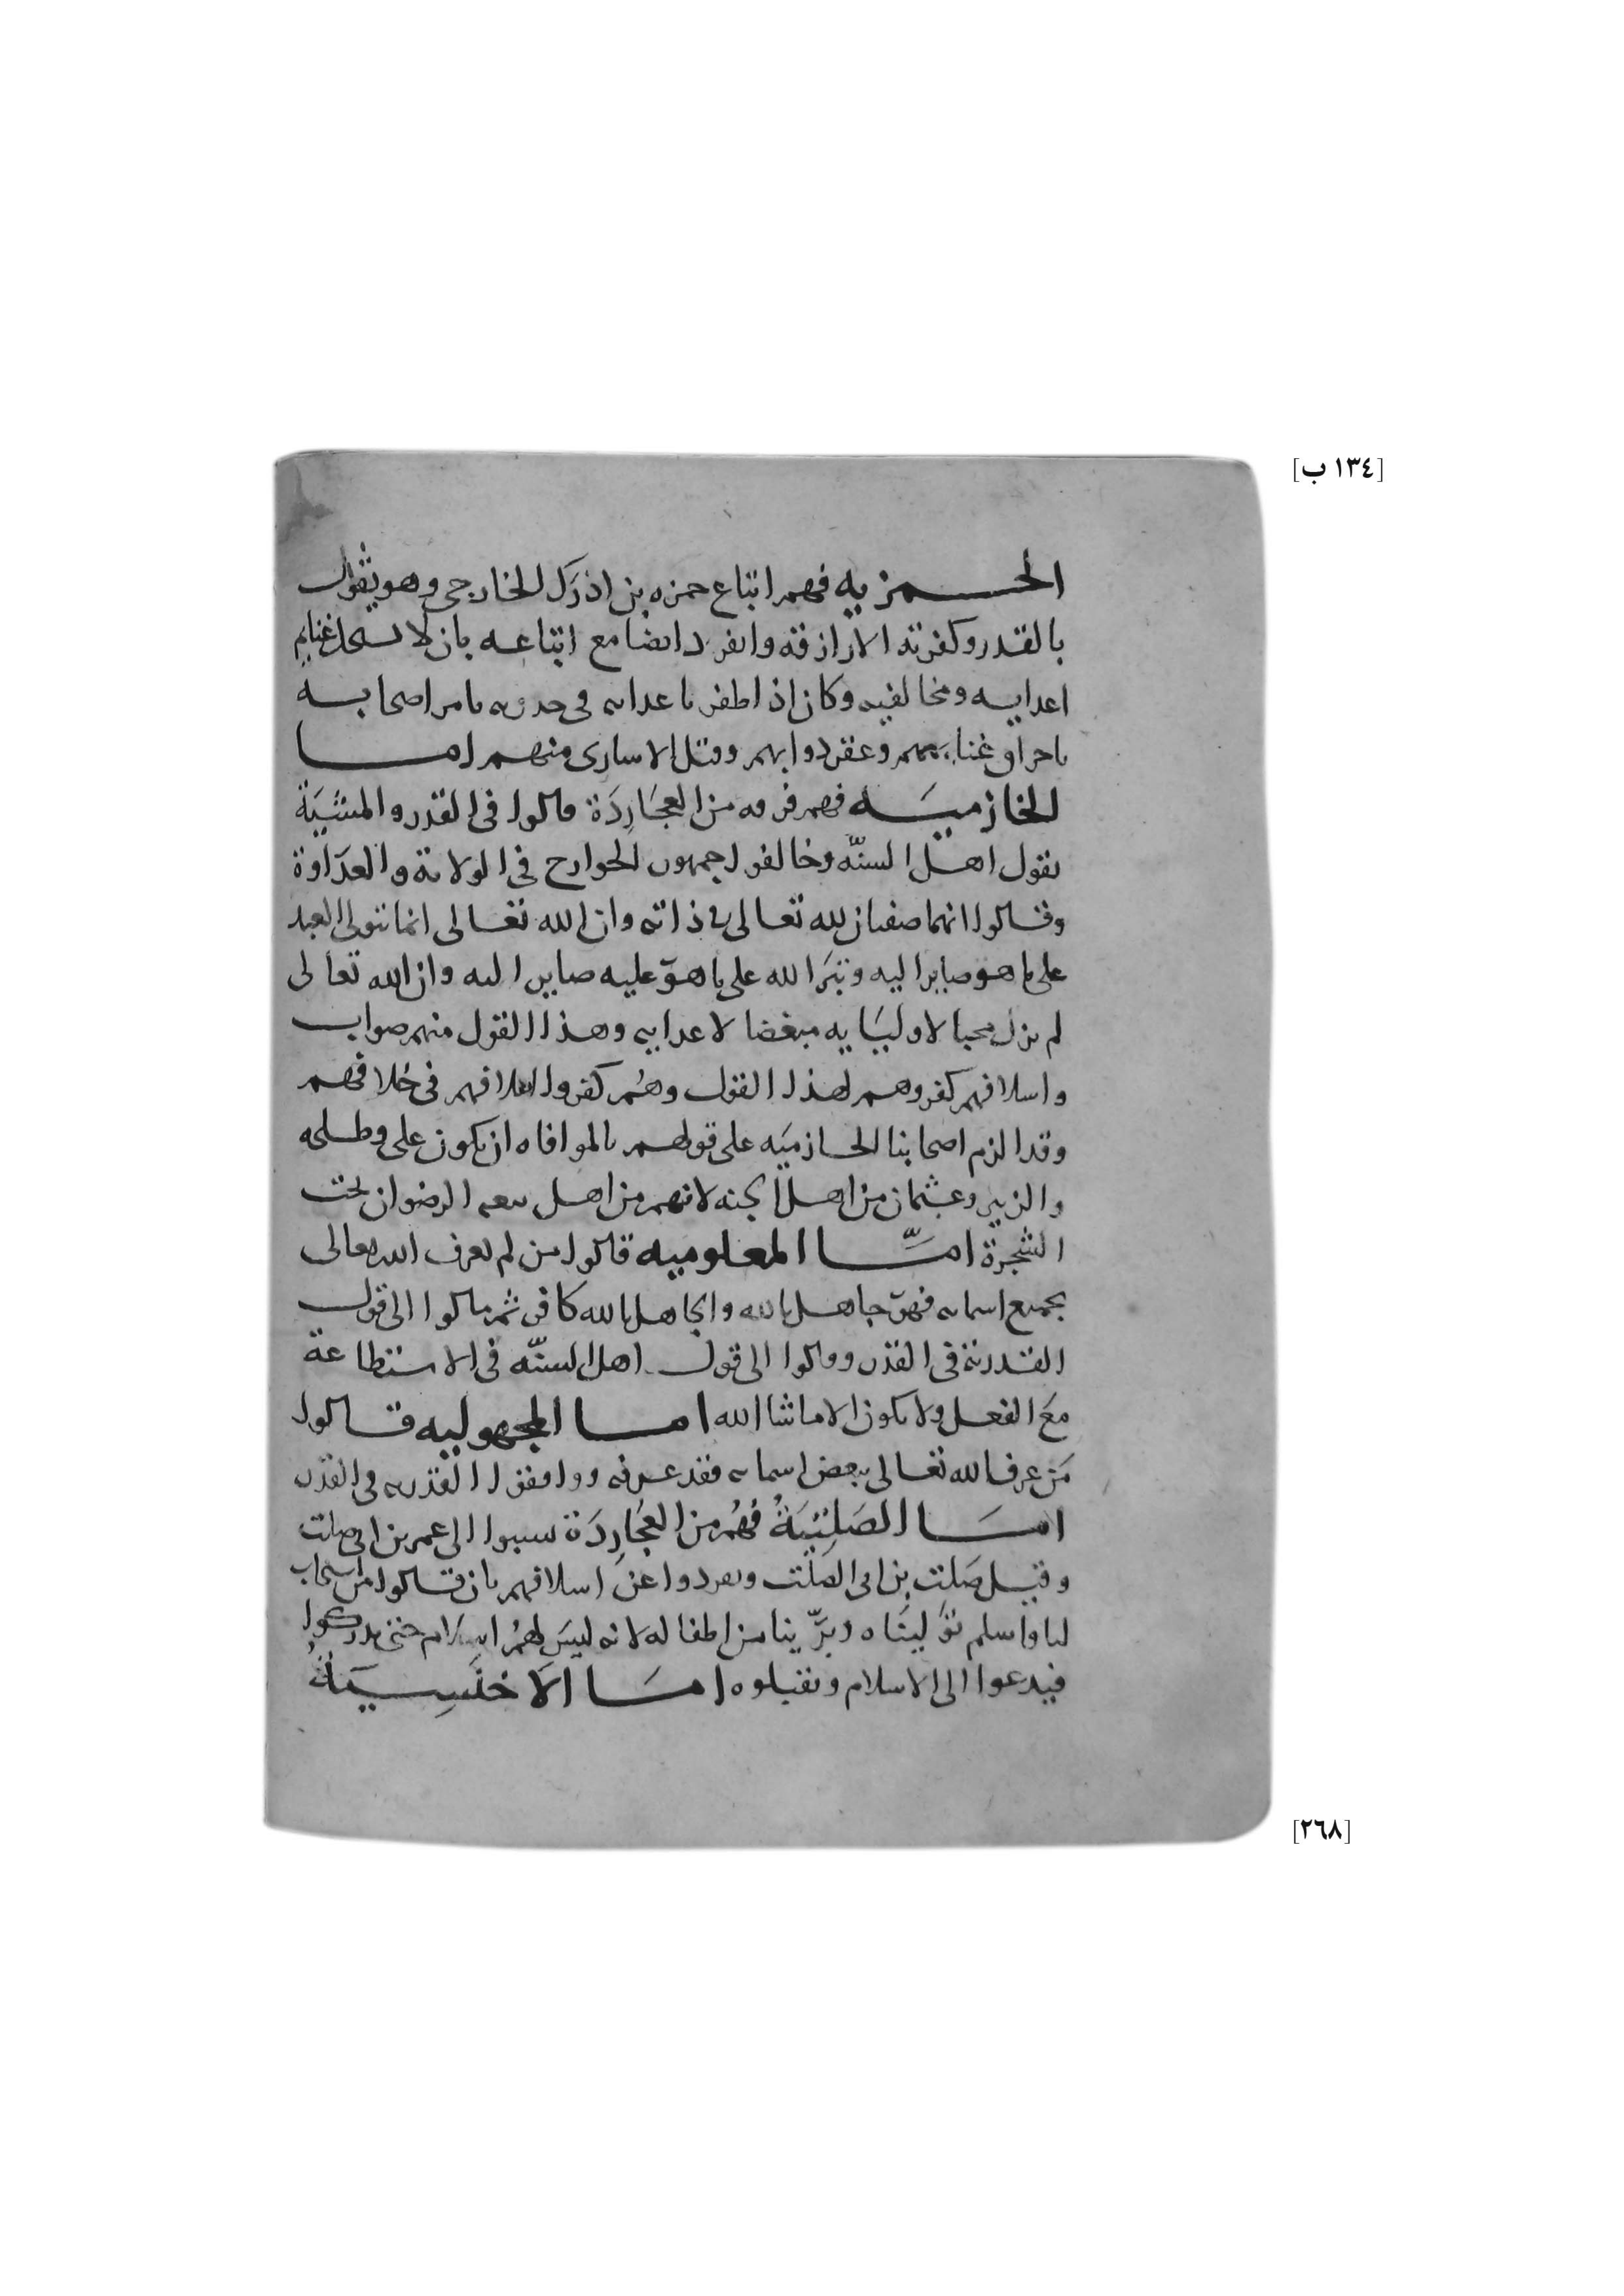 [١٣٤ ب]
الحمزيه فهم اتباع حمزه بن اذرك الخارجي وهو يقول
بالقدر وكفرته الازارقه وانفرد ايضا مع اتباعه بان لا يستحل غنايم
اعدايه ومخالفيه وكان اذا ظفر باعدايه في حدوبه يامر اصحابه
باحراق غنايمهم وعقر دوابهم وقتل الاسارى منهم اما
الخازميَه فهم فرقه من العجَارِدَة قالوا في القدر والمشيَة
بقول اهل السنّه وخالفوا جمهور الخوارج في الولاية والعدَاوة
وقالوا انهما صفتان لله تعالى في ذاته وان الله تعالى انما يتولى العبد
على ما هو صاير اليه ويتبرَا الله على ما هوَ عليه صاير اليه وان الله تعالى
لم يزل محبا لاوليَايه مبغضا لاعدايه وهذا القول منهم صواب
واسلافهم كفروهم لهذا القول وهُم كفروا اسلافهم في خلافهم
وقد الزم اصحابنا الخازميَه على قولهم بالموافاه ان يكون علي وطلحه
والزبير وعثمان من اهل الجنه لانهم من اهل بيعه الرضوان تحت
الشجرة امَّا المعلوميه قالوا من لم يعرف الله تعالى
بجميع اسمايه فهوَ جاهل بالله والجاهل بالله كافر ثم مالوا الى قول
القدرية في القدر ومالوا الى قول اهل السنّه في الاستطاعة
معَ الفعل ولا يكون الا ما شا الله اما المجهوليه قالوا
مَن عرف الله تعالى ببعض اسمايه فقد عرفه ووافقوا القدريه في القدر
امَا الصَلِتيَةُ فهُم من العجَارِدَة نسبوا الى عمر بن ابي صلت
وقيل صَلت بن ابي الصَلت وتفردوا عن اسلافهم بان قالوا من استجاب
لنا واسلم توَليَناه وبرّينا من اطفاله لانه ليسَ لهُم اسلام حتى يدركوا
فيدعوا الى الاسلام ويقبلوه امَا الاَخنَسِيَةُ
[٢٦٨]